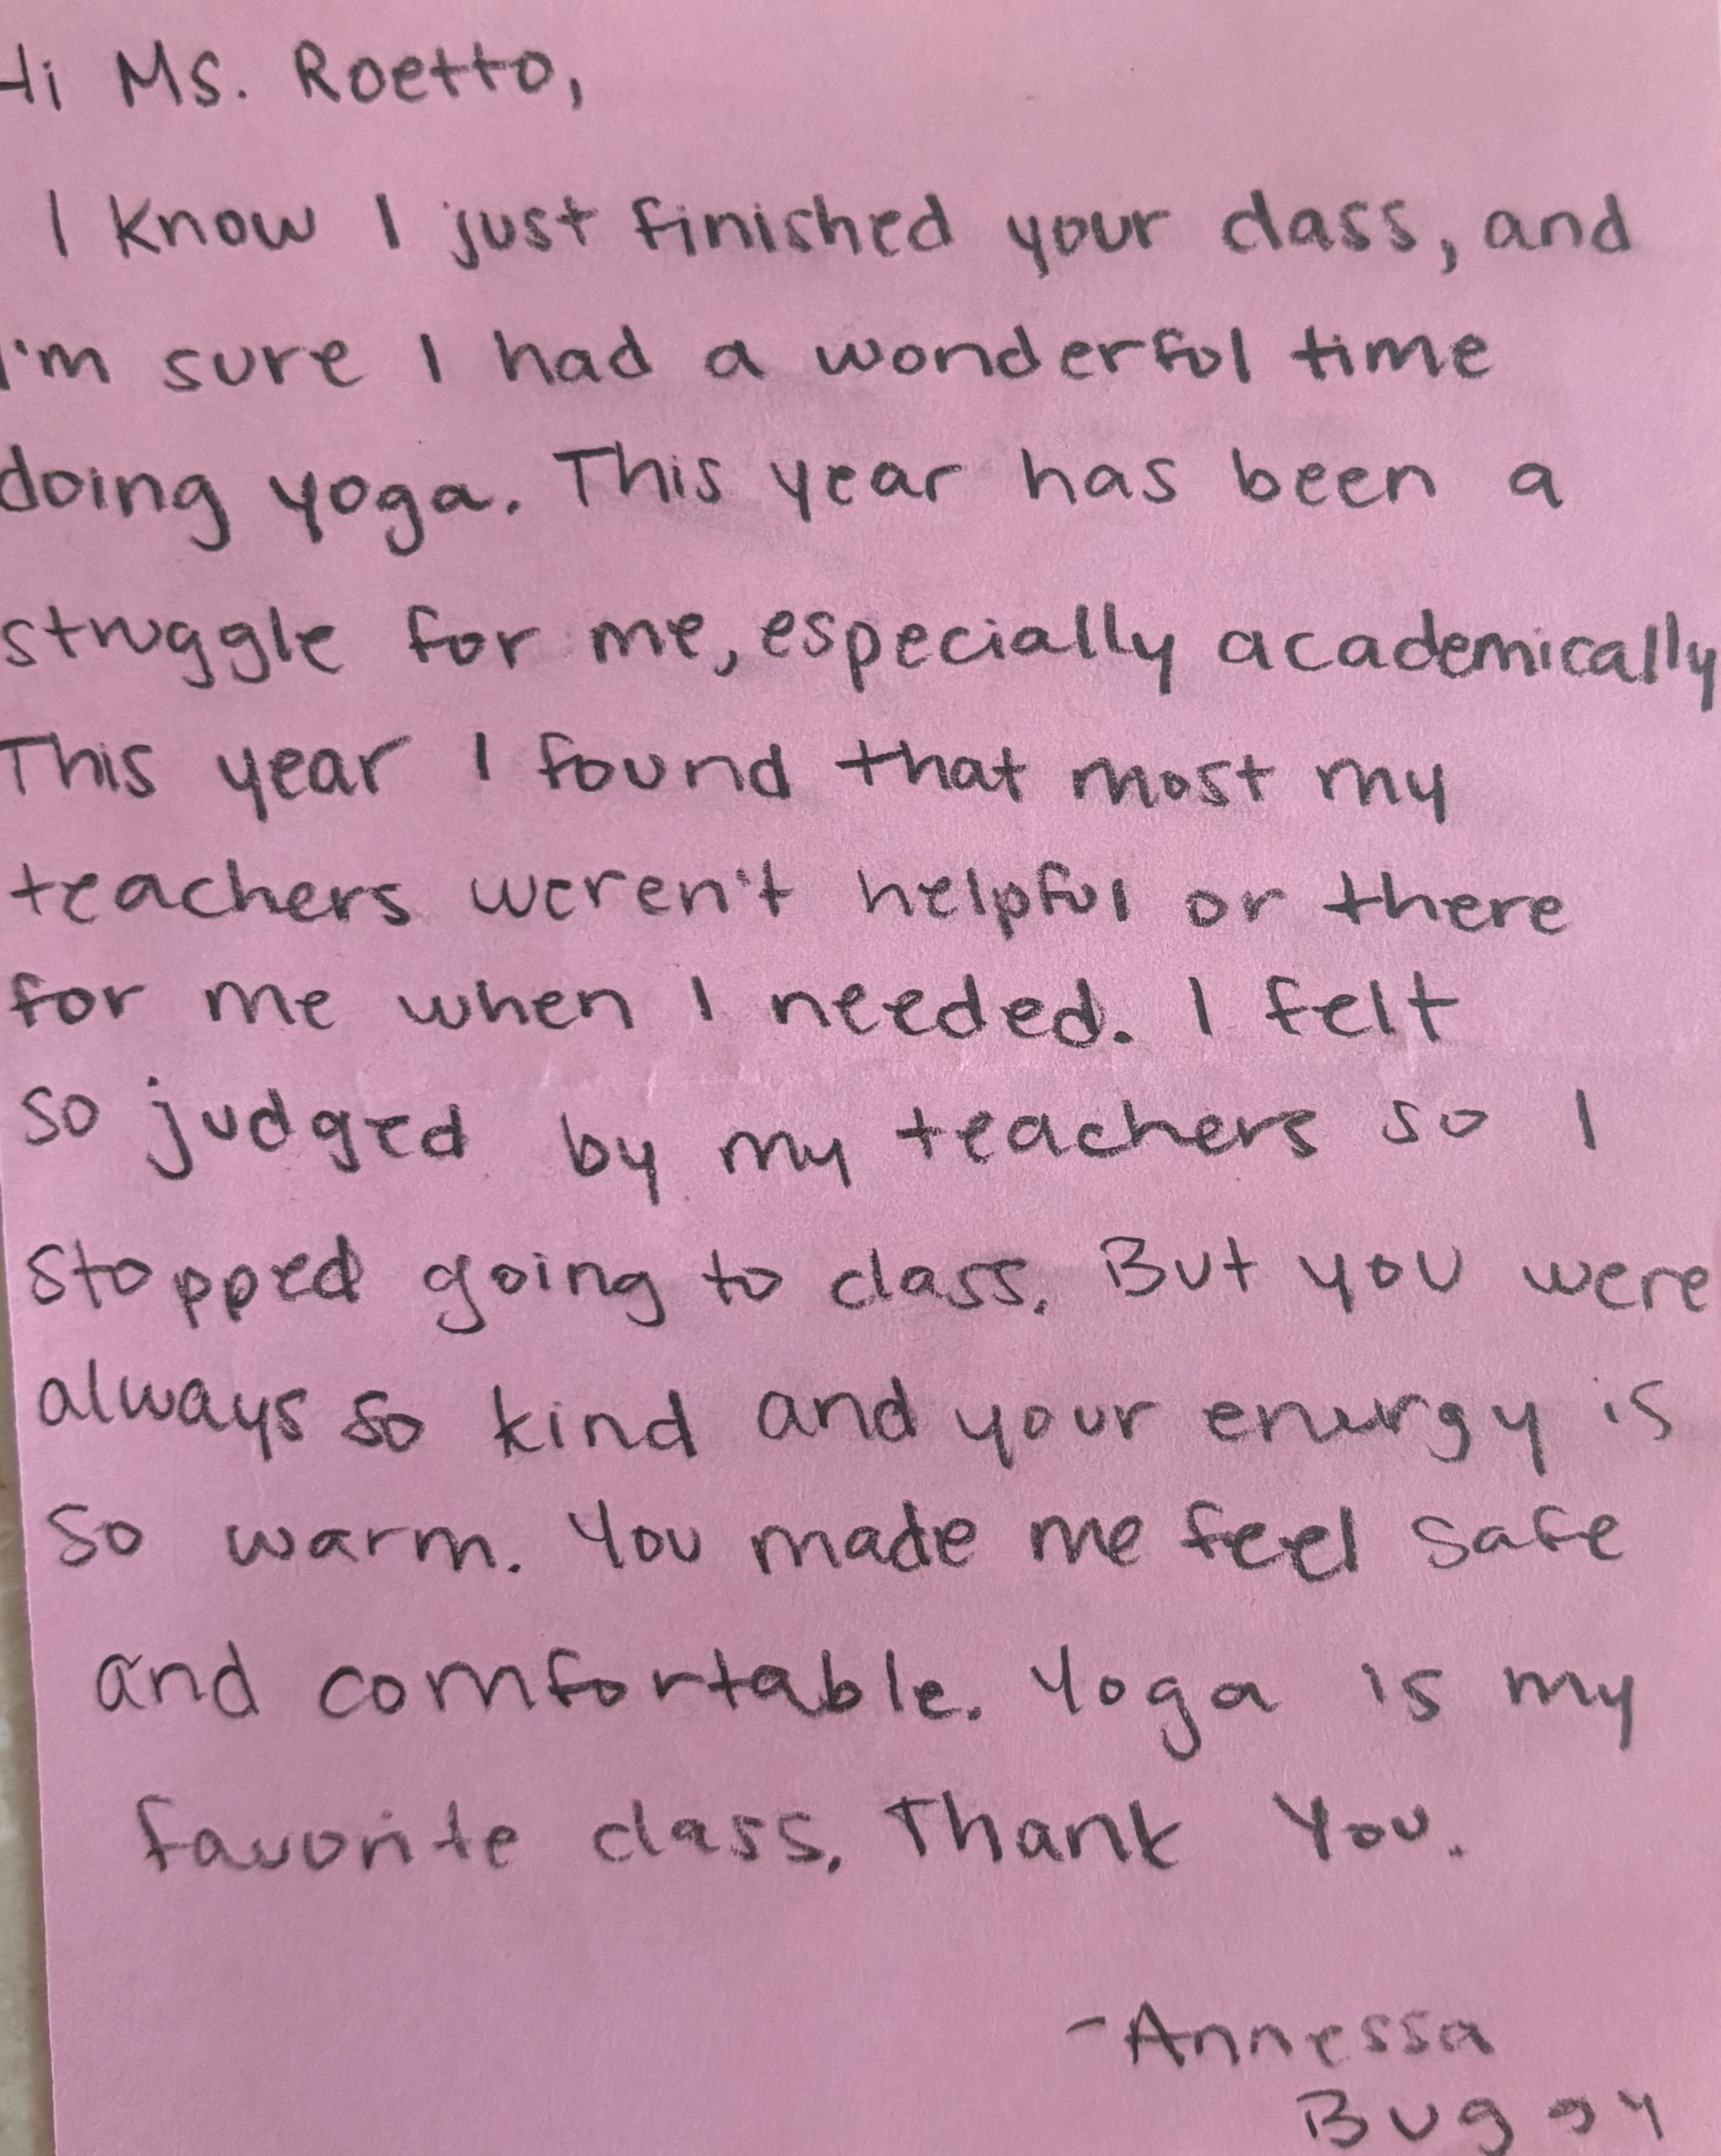 Hi Ms. Roetto,
I know I just finished your class, and
I'm sure I had a wonderful time
doing yoga. This year has been a
struggle for me, especially academically
This year I found that most my
teachers weren't helpful or there
for me when I needed. I felt
so judged by my teachers so I
stopped going to class. But you were
always so kind and your energy is
so warm. You made me feel safe
and comfortable. Yoga is my
favorite class. Thank You.
-Annessa
Buggy